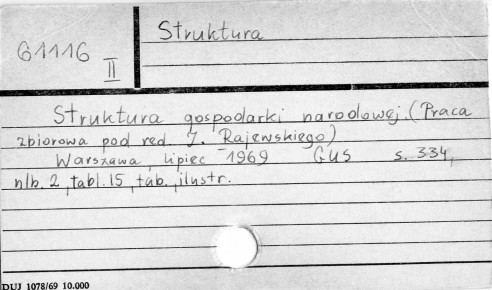 Struktura
61116
II
Struktura gospodarki narodowej. (Praca
zbiorowa pod red J. Rajewskiego)
Warszawa, lipiec 1969 GUS s. 334,
nlb. 2, tabl. 15, tab., ilustr.
DUJ 1078/69 10.000